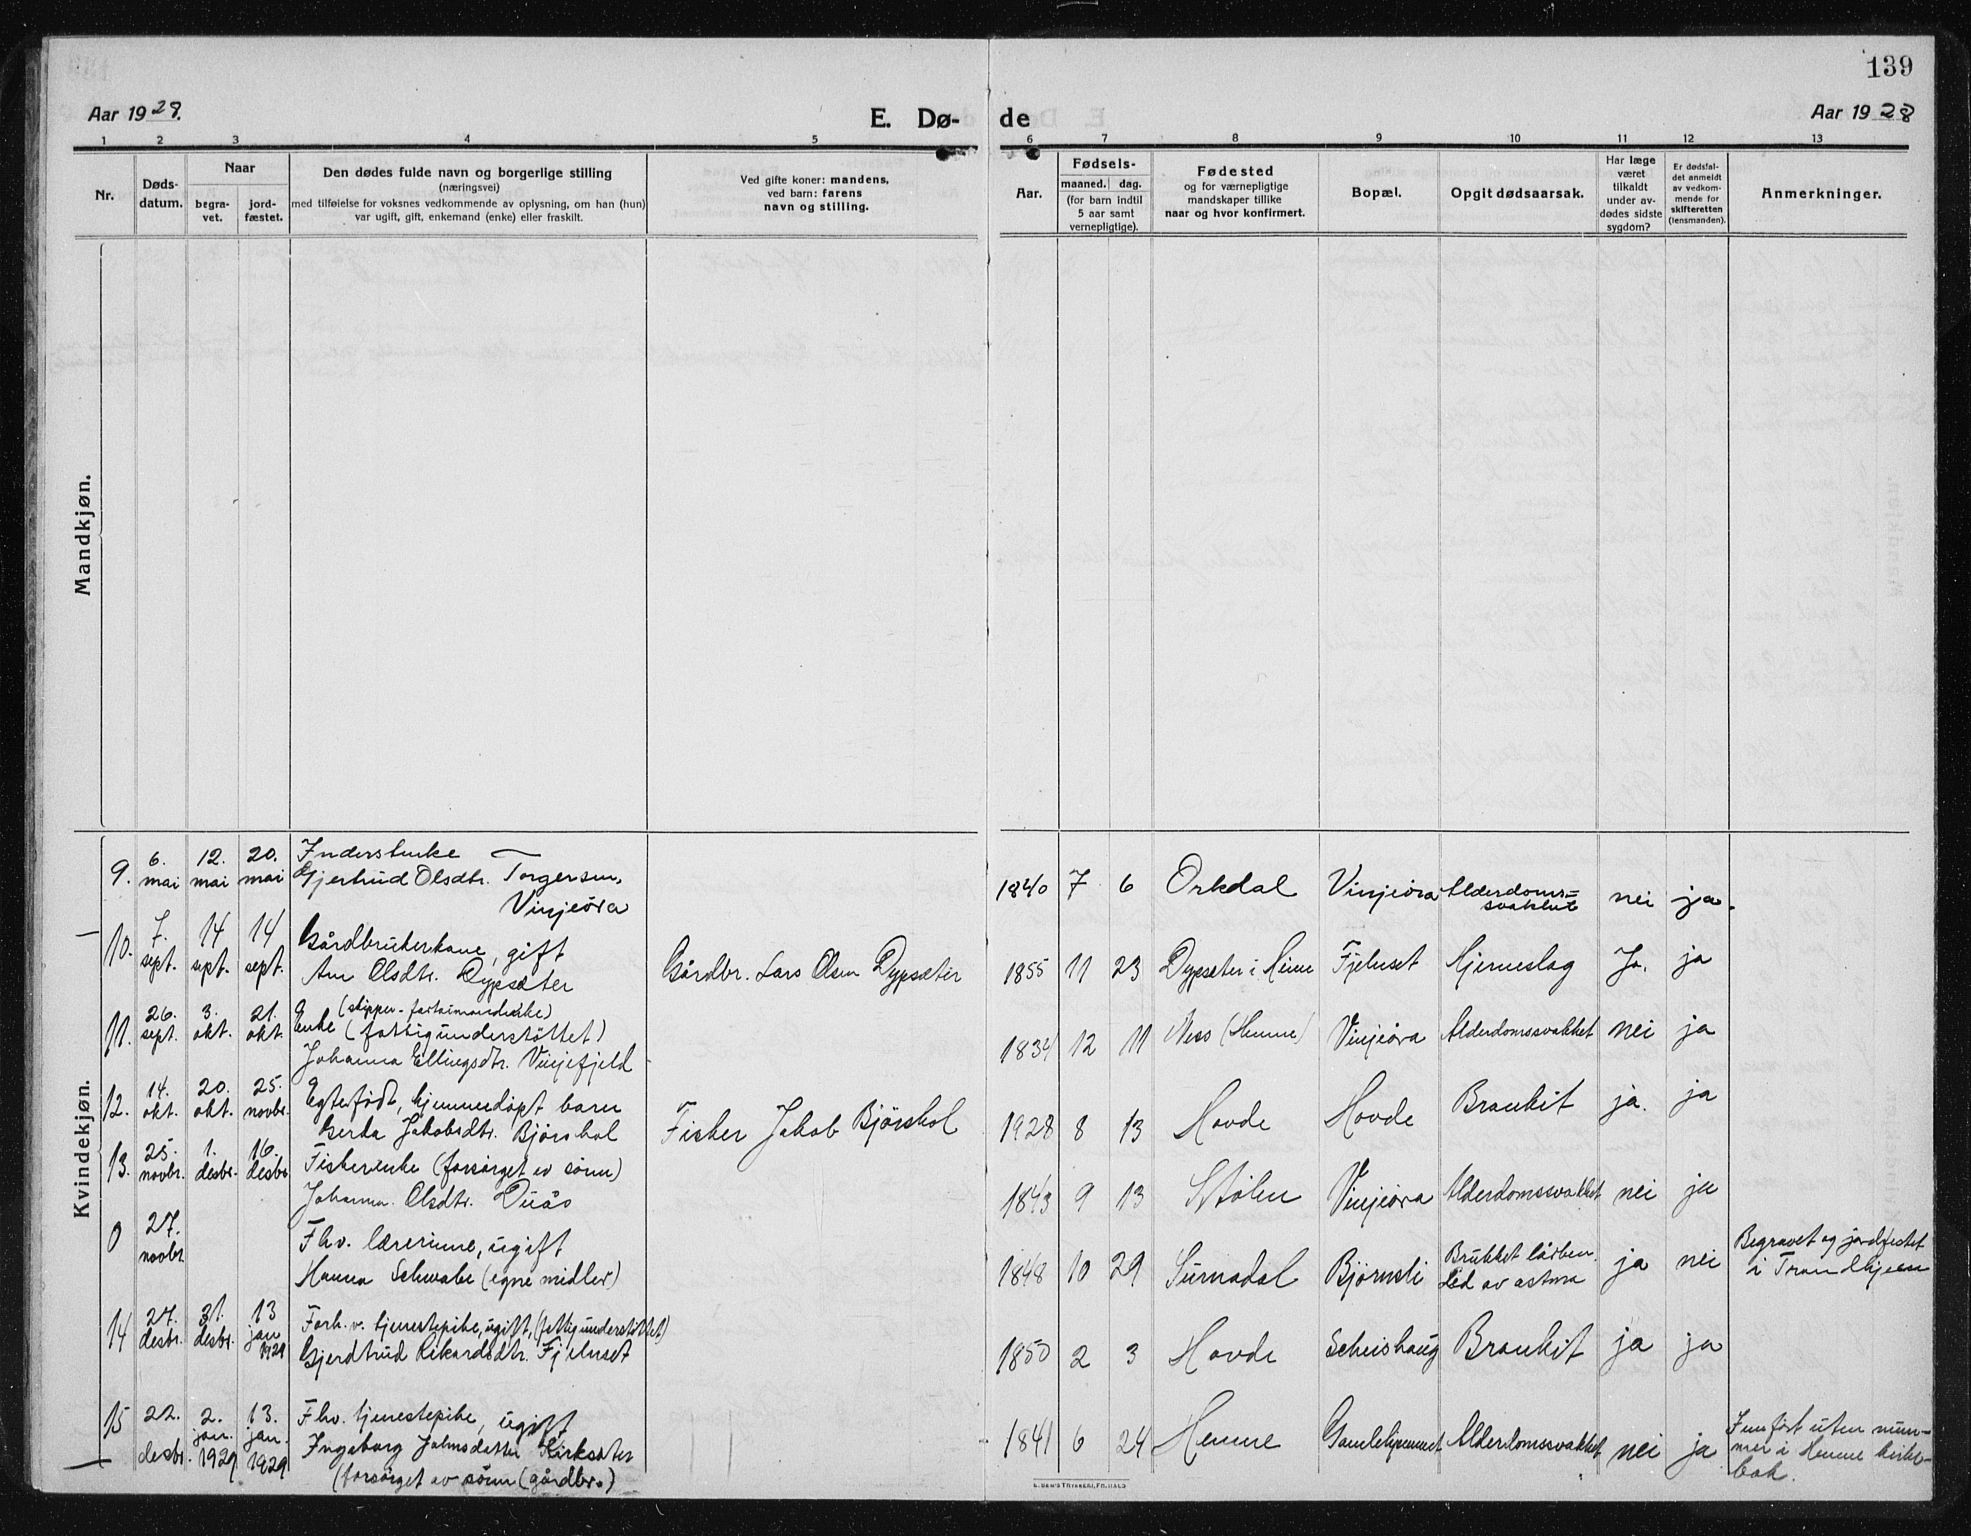 139
Aar 1928.
E. Dø-
de
Aar 1928
1 2 3 4 5 6 7 8 9 10 11 12 13
Nr.
Døds-
datum.
Naar
begra-
vet.
jord-
fæstet.
Den dødes fulde navn og borgerlige stilling
(næringsvei)
med tilføielse for voksnes vedkommende av oplysning, om han (hun)
var ugift, gift, enkemand (enke) eller fraskilt.
Ved gifte koner: mandens,
ved barn: farens
navn og stilling.
Aar.
Fødsels-
maaned. dag.
(for barn indtil
5 aar samt
vernepligtige).
Fødested
og for værnepligtige
mandskaper tillike
naar og hvor konfirmert.
Bopæl.
Opgit dødsaarsak.
Har læge
været
tilkaldt
under av-
dødes sidste
sygdom?
Er dødsfal-
det anmeldt
av vedkom-
mende for
skifteretten
(lensmanden).
Anmerkninger.
Mandkjøn.
Kvindekjøn.
9. 6. mai 12. mai 20. mai
Gjertrud Olsdtr. Torgersen,
Vinjeöra
1840 7 6 Orkdal Vinjeöra Alderdoms-
svakket nei ja.
10. 7. sept. 14 sept. 14 sept.
Gårdbrukerkone, gift
Ane Olsdtr. Dypsæter
Gårdbr. Lars Olsen Dypsæter
1855 11 23 Dypsæter i Heine Fjeluset Hjerneslag Ja. ja
11. 26. sept. 3. okt. 21. okt.
Enke (fattigunderstöttet)
Johanna Ellingsdtr. Vinjefjeld
1834 12 11 Ness (Hemne) Vinjeöra Alderdomssvakket nei ja
12. 14. okt. 20. okt. 25. novbr.
Egtefödt, hjemmedöpt barn
Gerda Jakobsdtr. Bjørshol
Fisker Jakob Bjørshol
1928 8 13 Hovde Hovde Bronkit ja. ja
13. 25. novbr. 1. desbr. 16. desbr
Fiskerenke (forsörget av sönn)
Johanna Olsdtr. Duås
1843 9 13 Stölen Vinjeöra Alderdomssvakket nei ja
0 27. novbr
Fhv. lærerinne, ugift
Hanna Schwabe (egne midler)
1848 10 29 Surnadal Bjørnsli Brukket lårben.
Led av astma ja nei Begravet og jordfestet
i Trondhjem
14 27. desbr. 31. desbr. 13 jan 1929
Forh. v. tjenestepike, ugift, (fattigunderstöttet)
Gjerdtrud Rikardsdtr. Fjeluset
1850 2 3 Hovde Bronkit ja ja
15 22. desbr. 2. jan. 1929 13. jan. 1929
Fhv. tjenestepike, ugift
Ingeborg Johnsdatter Kirksæter
(forsörget av sönn (gårdbr.)
1841 6 24 Hemne Gamlehjemmet Alderdomssvakket nei ja Innfört uten num-
mer i Hemne kirke-
bok.